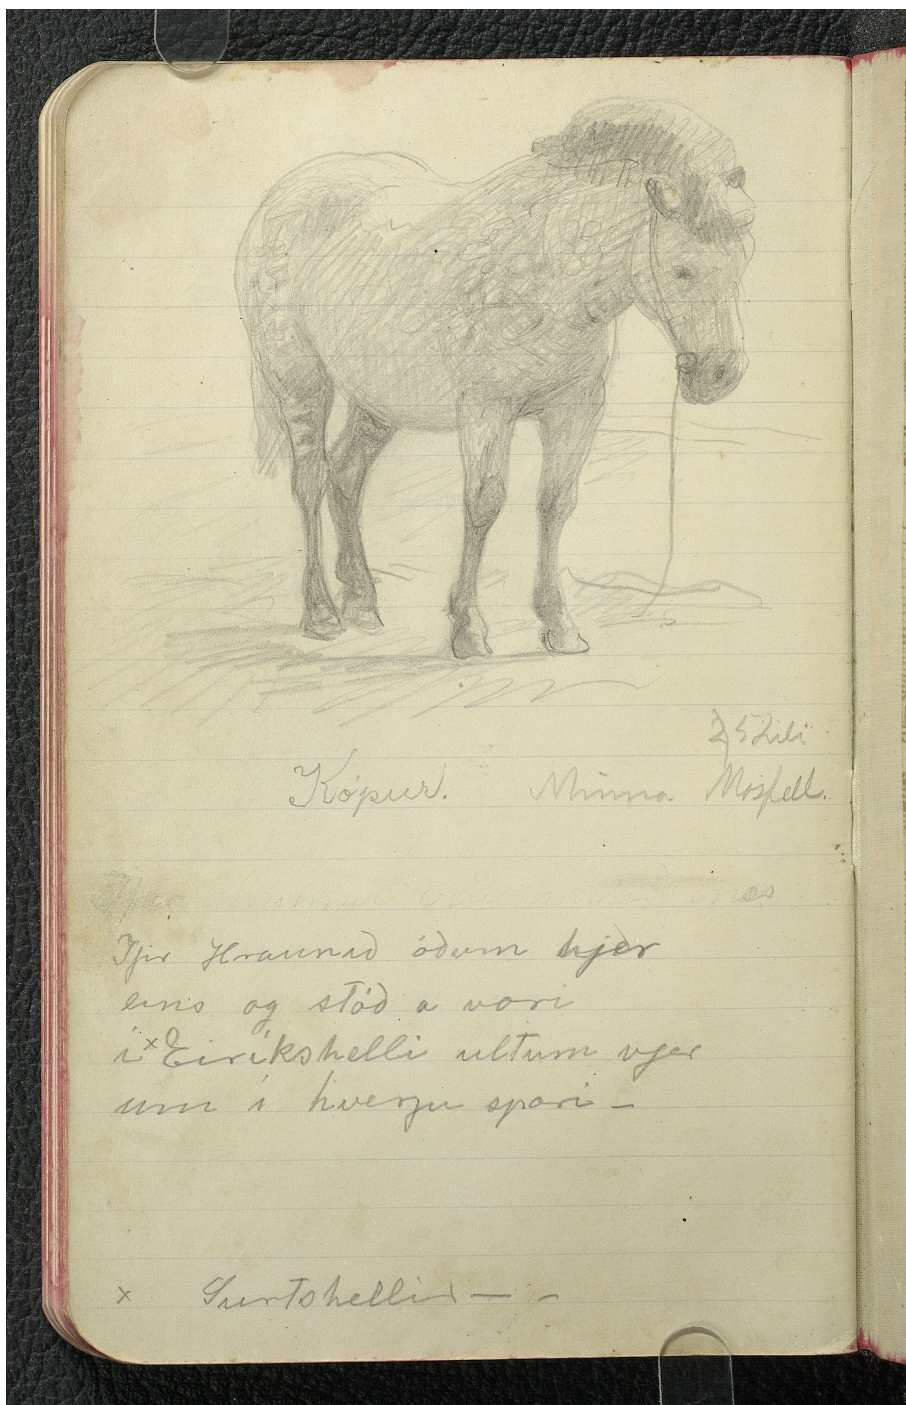 25 Juli
Kópur. Minna Mosfell.
Yfir Hraunið óðum hjer
eins og stóð a vori
í x Eiríkshelli ultum vjer
um í hverju spori –
x Surtshellir — –